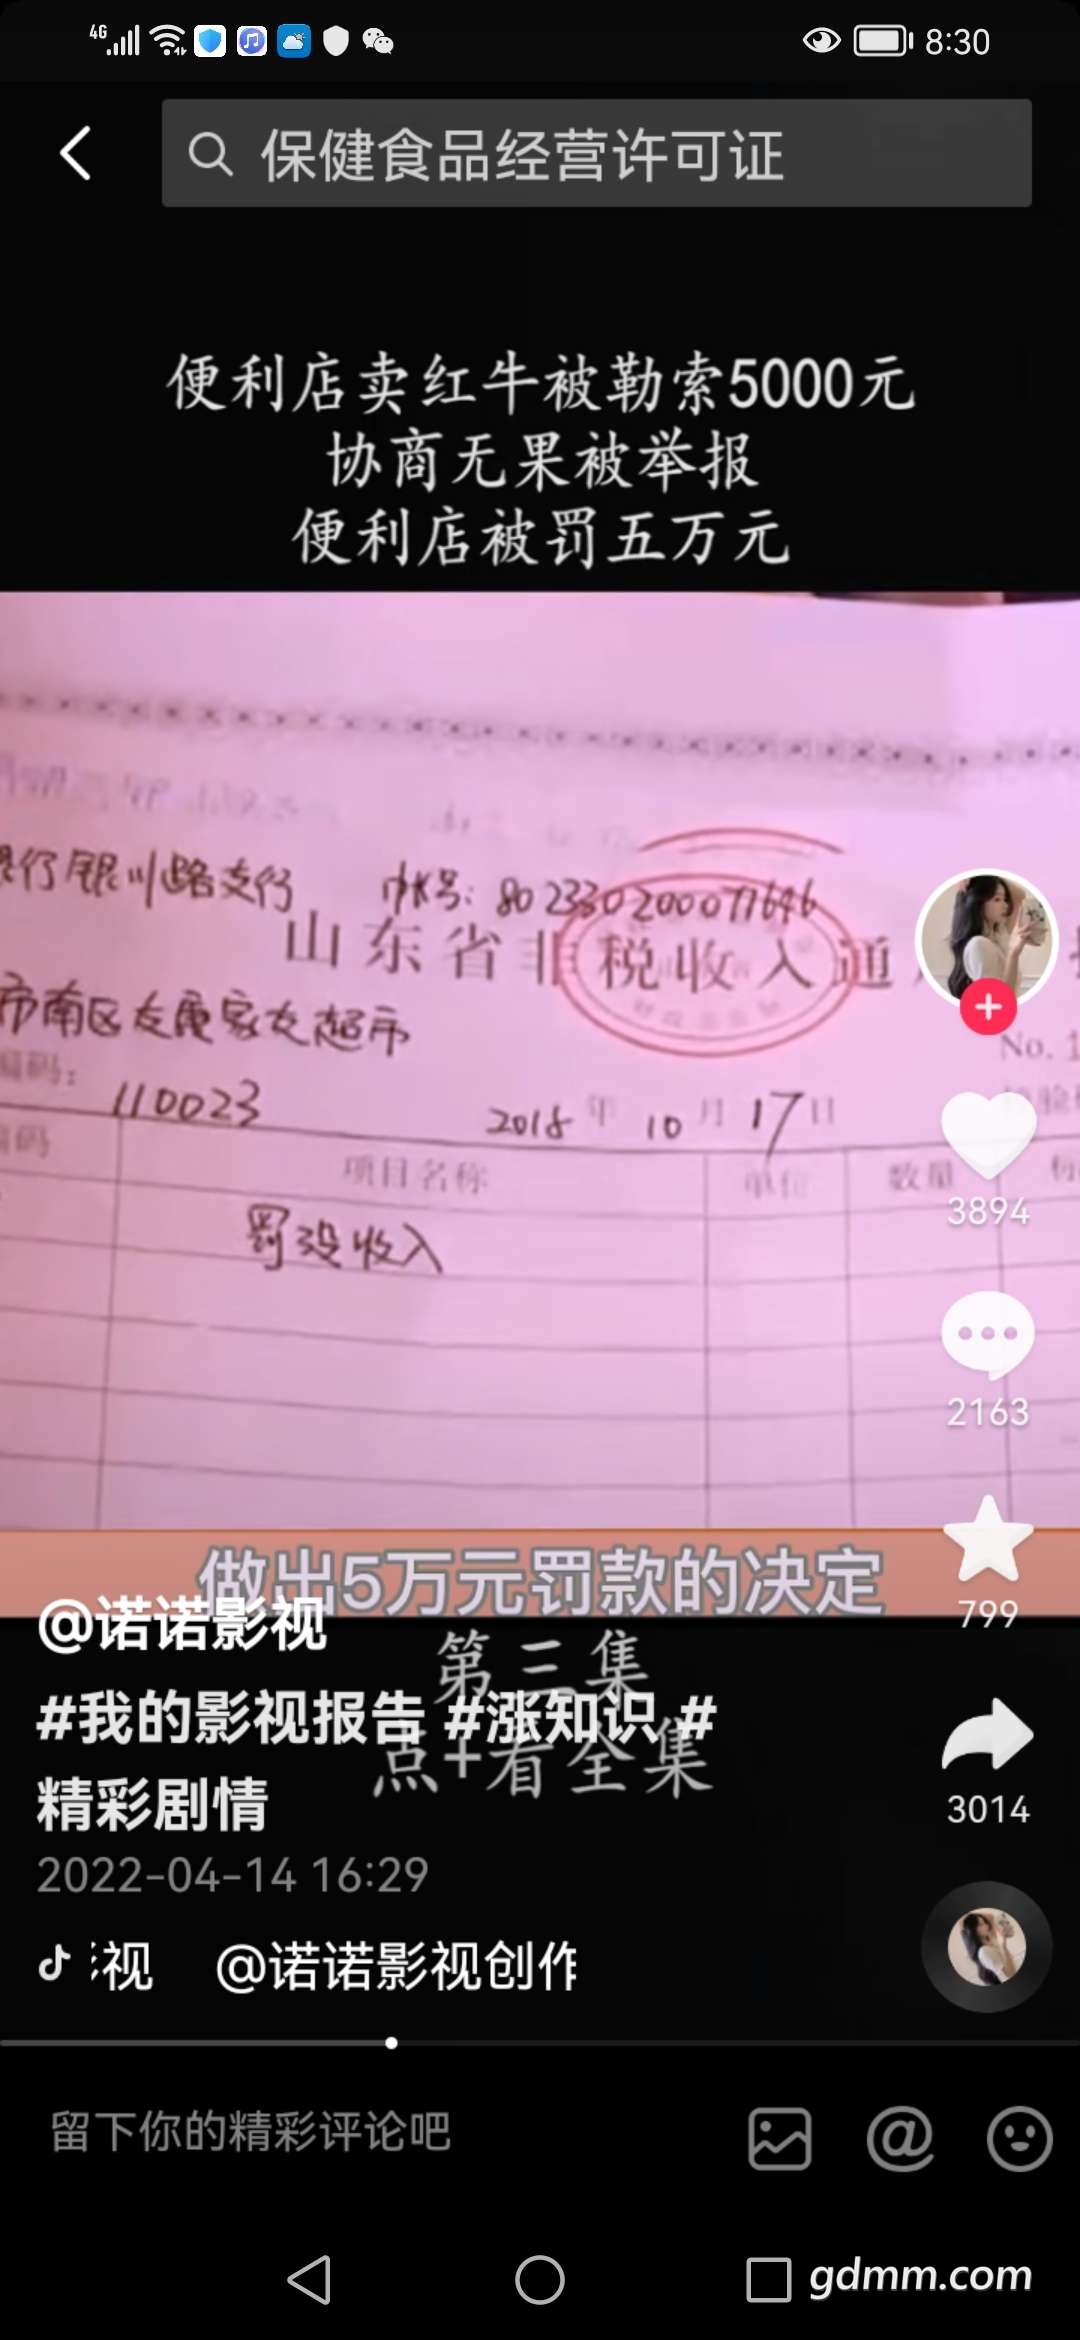 4G
8:30
保健食品经营许可证
便利店卖红牛被勒索5000元
协商无果被举报
便利店被罚五万元
行银川路支行 帐号: 802330200077646
山东省非税收入通
市南区友康家友超市
No. 1
编码: 110023 2015年10月17日
编码 项目名称 单位 数量 标
罚没收入
3894
2163
做出5万元罚款的决定
799
@诺诺影视
第三集
#我的影视报告 #涨知识 #
点+看全集
精彩剧情
3014
2022-04-14 16:29
视 @诺诺影视创作
留下你的精彩评论吧
gdmm.com